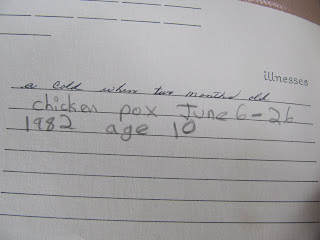 illnesses
a cold when two months old
chicken pox June 6-26
1982 age 10